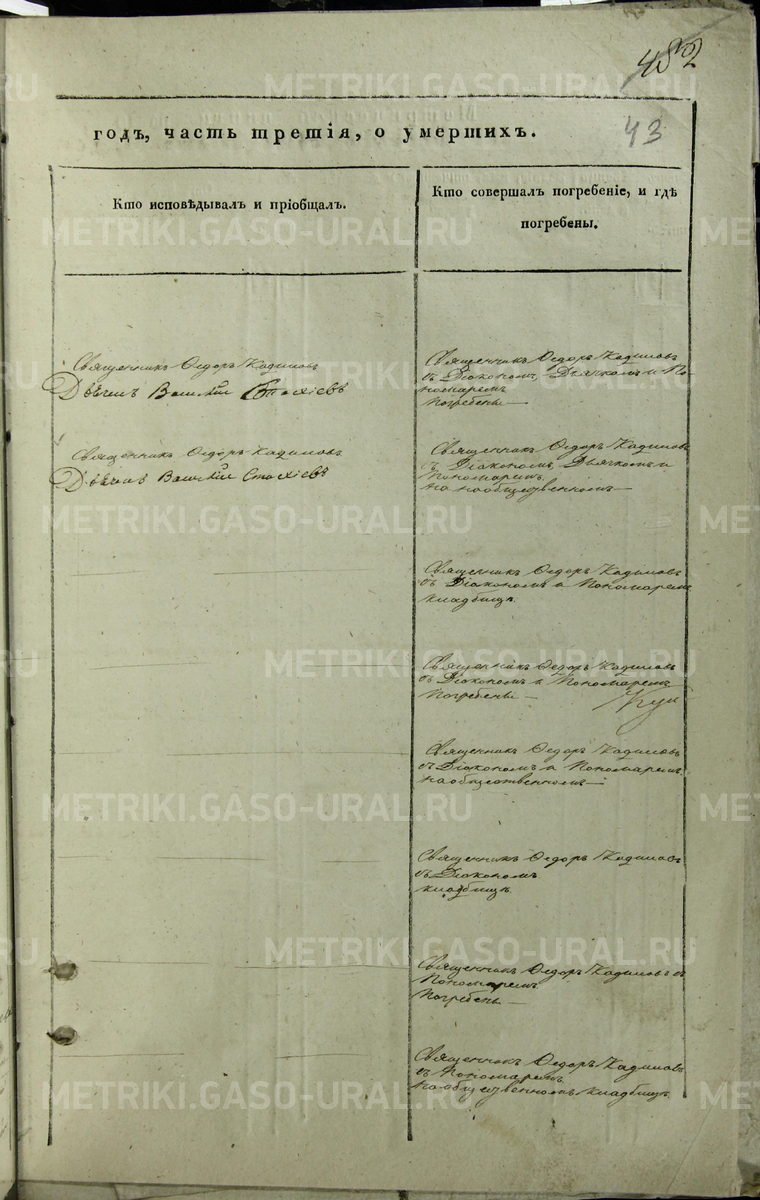 482
43
годъ, часть третія, о умершихъ.
Кто исповѣдывалъ и пріобщалъ.
Кто совершалъ погребеніе, и гдѣ
погребены.
Священникъ Ѳедоръ Кадимовъ
Василій
Священникъ Ѳедоръ Кадимовъ
съ Діакономъ, Дьячкомъ и По-
номаремъ
погребены
Священникъ Ѳедоръ Кадимовъ
Василій
Священникъ Ѳедоръ Кадимовъ
съ Діакономъ, Дьячкомъ и
Пономаремъ
на общественномъ
Священникъ Ѳедоръ Кадимовъ
съ Діакономъ и Пономаремъ
кладбищѣ.
Священникъ Ѳедоръ Кадимовъ
съ Діакономъ и Пономаремъ
погребены
Священникъ Ѳедоръ Кадимовъ
съ Діакономъ и Пономаремъ
на общественномъ
Священникъ Ѳедоръ Кадимовъ
съ Діакономъ
кладбищѣ
Священникъ Ѳедоръ Кадимовъ съ
Пономаремъ
погребены
Священникъ Ѳедоръ Кадимовъ
съ Пономаремъ
на общественномъ кладбищѣ.
METRIKI.GASO-URAL.RU